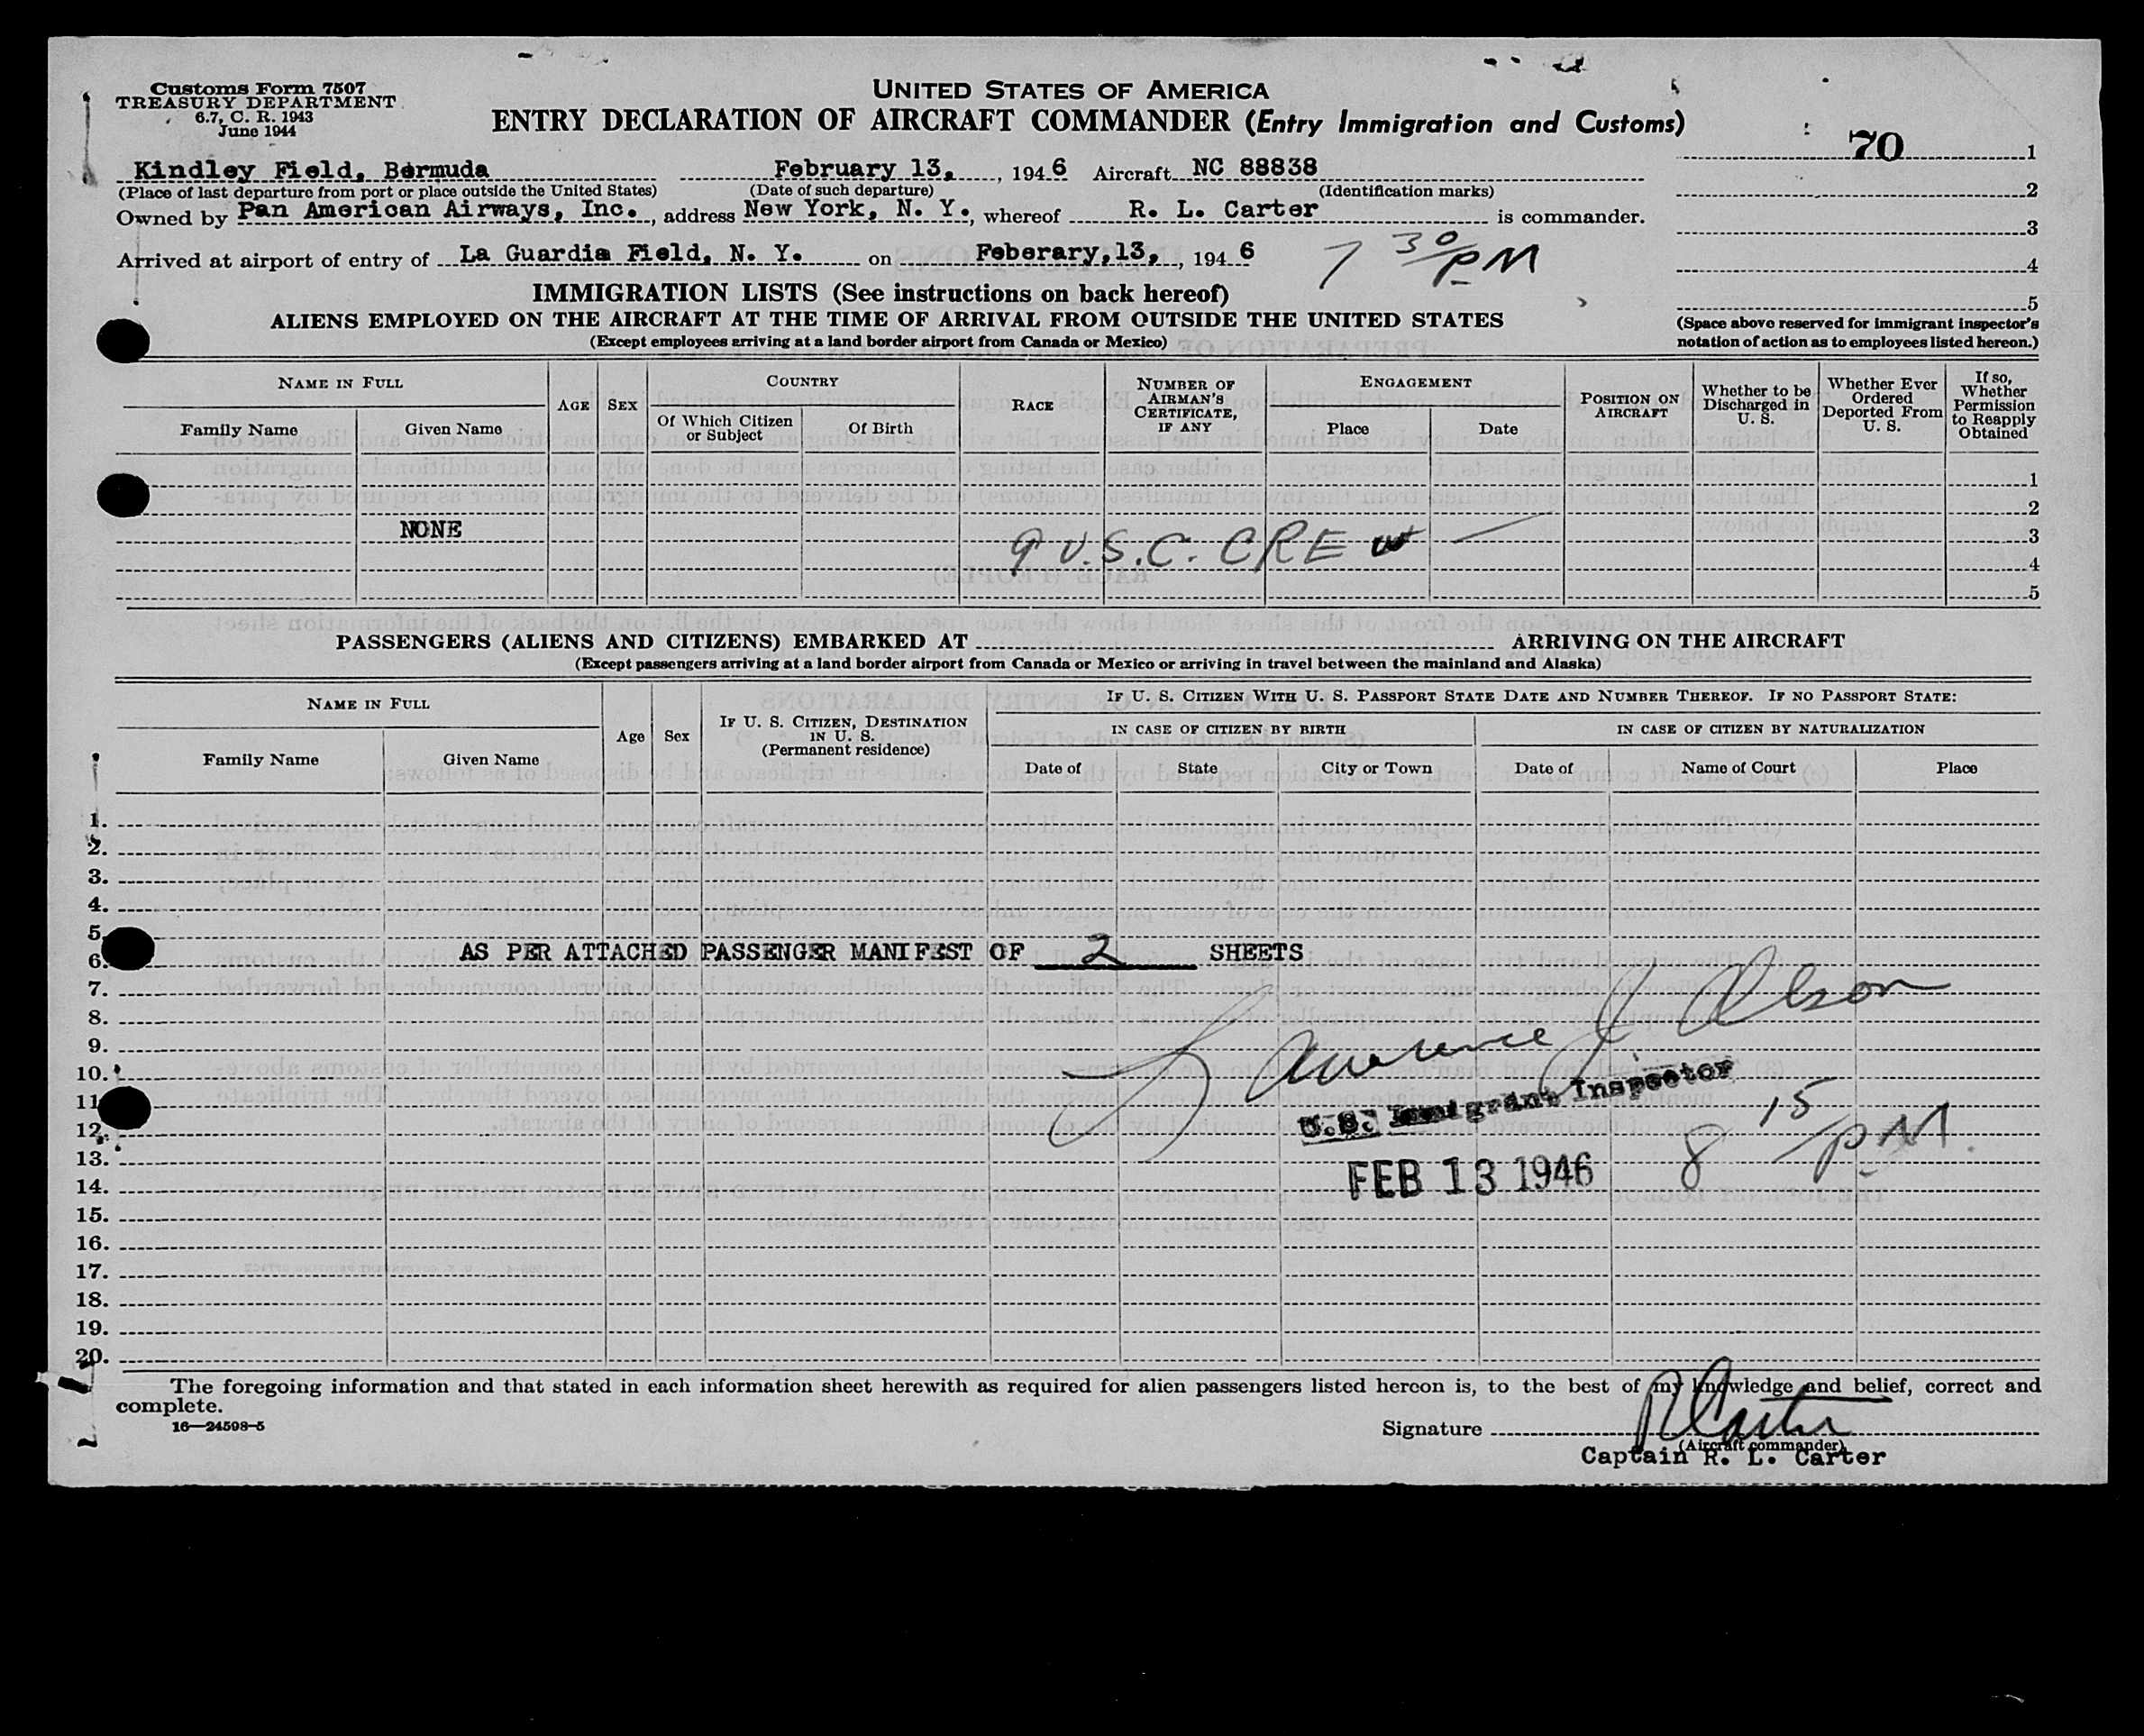 Customs Form 7507
TREASURY DEPARTMENT
6.7, C. R. 1943
June 1944
UNITED STATES OF AMERICA
ENTRY DECLARATION OF AIRCRAFT COMMANDER (Entry Immigration and Customs)
70 1
2
3
4
5
(Space above reserved for immigrant inspector's
notation of action as to employees listed hereon.)
Kindley Field, Bermuda February 13, , 194 6 Aircraft NC 88838
(Place of last departure from port or place outside the United States) (Date of such departure) (Identification marks)
Owned by Pan American Airways, Inc. , address New York, N. Y. , whereof R. L. Carter is commander.
Arrived at airport of entry of La Guardia Field, N. Y. on Feberary,13, , 194 6 7 30/PM
IMMIGRATION LISTS (See instructions on back hereof)
ALIENS EMPLOYED ON THE AIRCRAFT AT THE TIME OF ARRIVAL FROM OUTSIDE THE UNITED STATES
(Except employees arriving at a land border airport from Canada or Mexico)
NAME IN FULL
Family Name
Given Name
AGE
SEX
COUNTRY
Of Which Citizen
or Subject
Of Birth
RACE
NUMBER OF
AIRMAN'S
CERTIFICATE,
IF ANY
ENGAGEMENT
Place
Date
POSITION ON
AIRCRAFT
Whether to be
Discharged in
U. S.
Whether Ever
Ordered
Deported From
U. S.
If so,
Whether
Permission
to Reapply
Obtained
1
2
NONE 3
9 U.S.C. CREW — 4
5
PASSENGERS (ALIENS AND CITIZENS) EMBARKED AT ARRIVING ON THE AIRCRAFT
(Except passengers arriving at a land border airport from Canada or Mexico or arriving in travel between the mainland and Alaska)
NAME IN FULL
Family Name
Given Name
Age
Sex
IF U. S. CITIZEN, DESTINATION
IN U. S.
(Permanent residence)
IF U. S. CITIZEN WITH U. S. PASSPORT STATE DATE AND NUMBER THEREOF. IF NO PASSPORT STATE:
IN CASE OF CITIZEN BY BIRTH
Date of
State
City or Town
IN CASE OF CITIZEN BY NATURALIZATION
Date of
Name of Court
Place
1.
2.
3.
4.
5.
6. AS PER ATTACHED PASSENGER MANIFEST OF 2 SHEETS
7.
8.
9. Lawrence J Olson
10.
11. U.S. Immigrant Inspector
12. 8 15/PM
13.
14. FEB 13 1946
15.
16.
17.
18.
19.
20.
The foregoing information and that stated in each information sheet herewith as required for alien passengers listed hereon is, to the best of my knowledge and belief, correct and
complete.
16—24598-5
Signature R Carter
(Aircraft commander)
Captain R. L. Carter